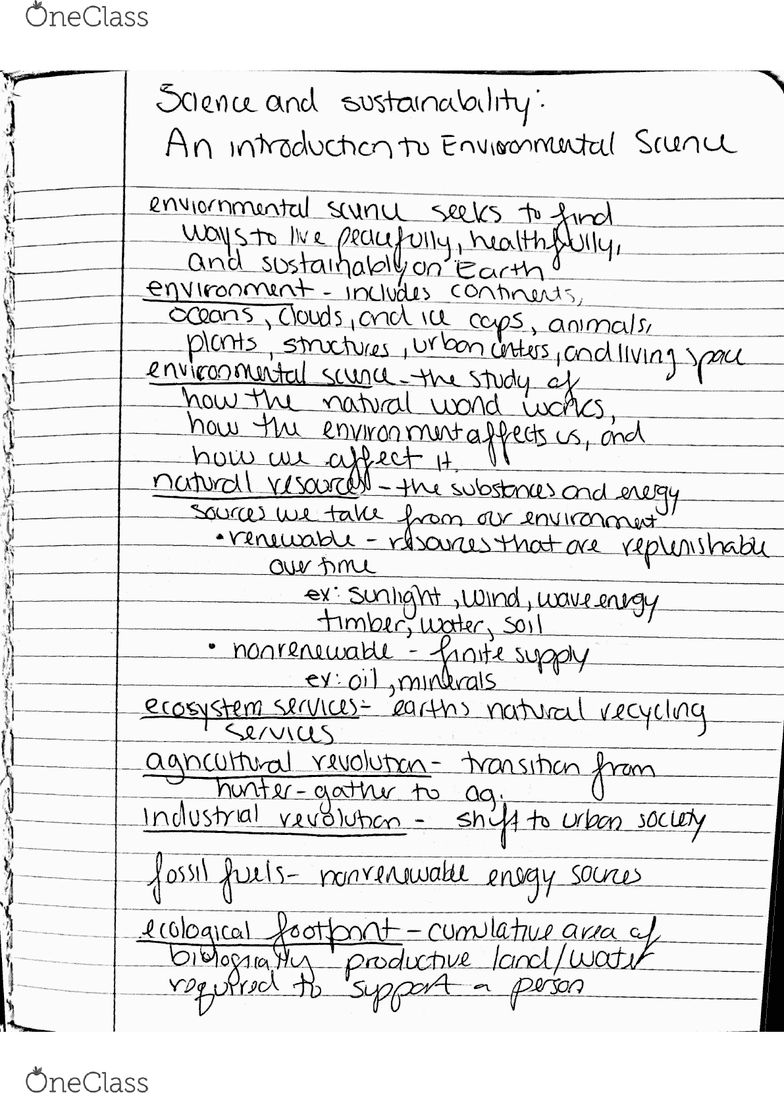 OneClass
Science and sustainability:
An introduction to Environmental Science
enviornmental science seeks to find
ways to live peacefully, healthfully,
and sustainably on Earth
environment - includes continents,
oceans, clouds, and ice caps, animals,
plants, structures, urban centers, and living space
environmental science - the study of
how the natural world works,
how the environment affects us, and
how we affect it.
natural resources - the substances and energy
sources we take from our environment
• renewable - resources that are replenishable
over time
ex: sunlight, wind, wave energy
timber, water, soil
• nonrenewable - finite supply
ex: oil, minerals
ecosystem services - earths natural recycling
services
agricultural revolution - transition from
hunter-gather to ag.
industrial revolution - shift to urban society
fossil fuels - nonrenewable energy sources
ecological footprint - cumulative area of
biologically productive land/water
required to support a person
OneClass